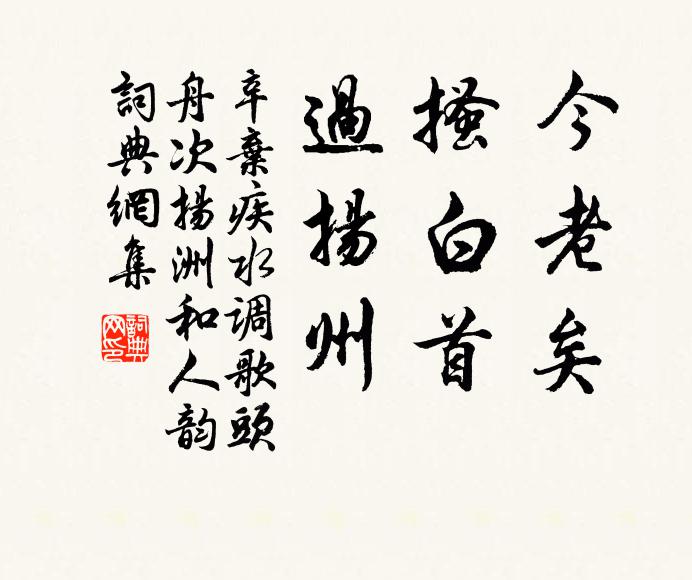 今老矣
搔白首
過揚州
辛棄疾水调歌頭
舟次揚洲和人韵
詞典網集
詞典
网印